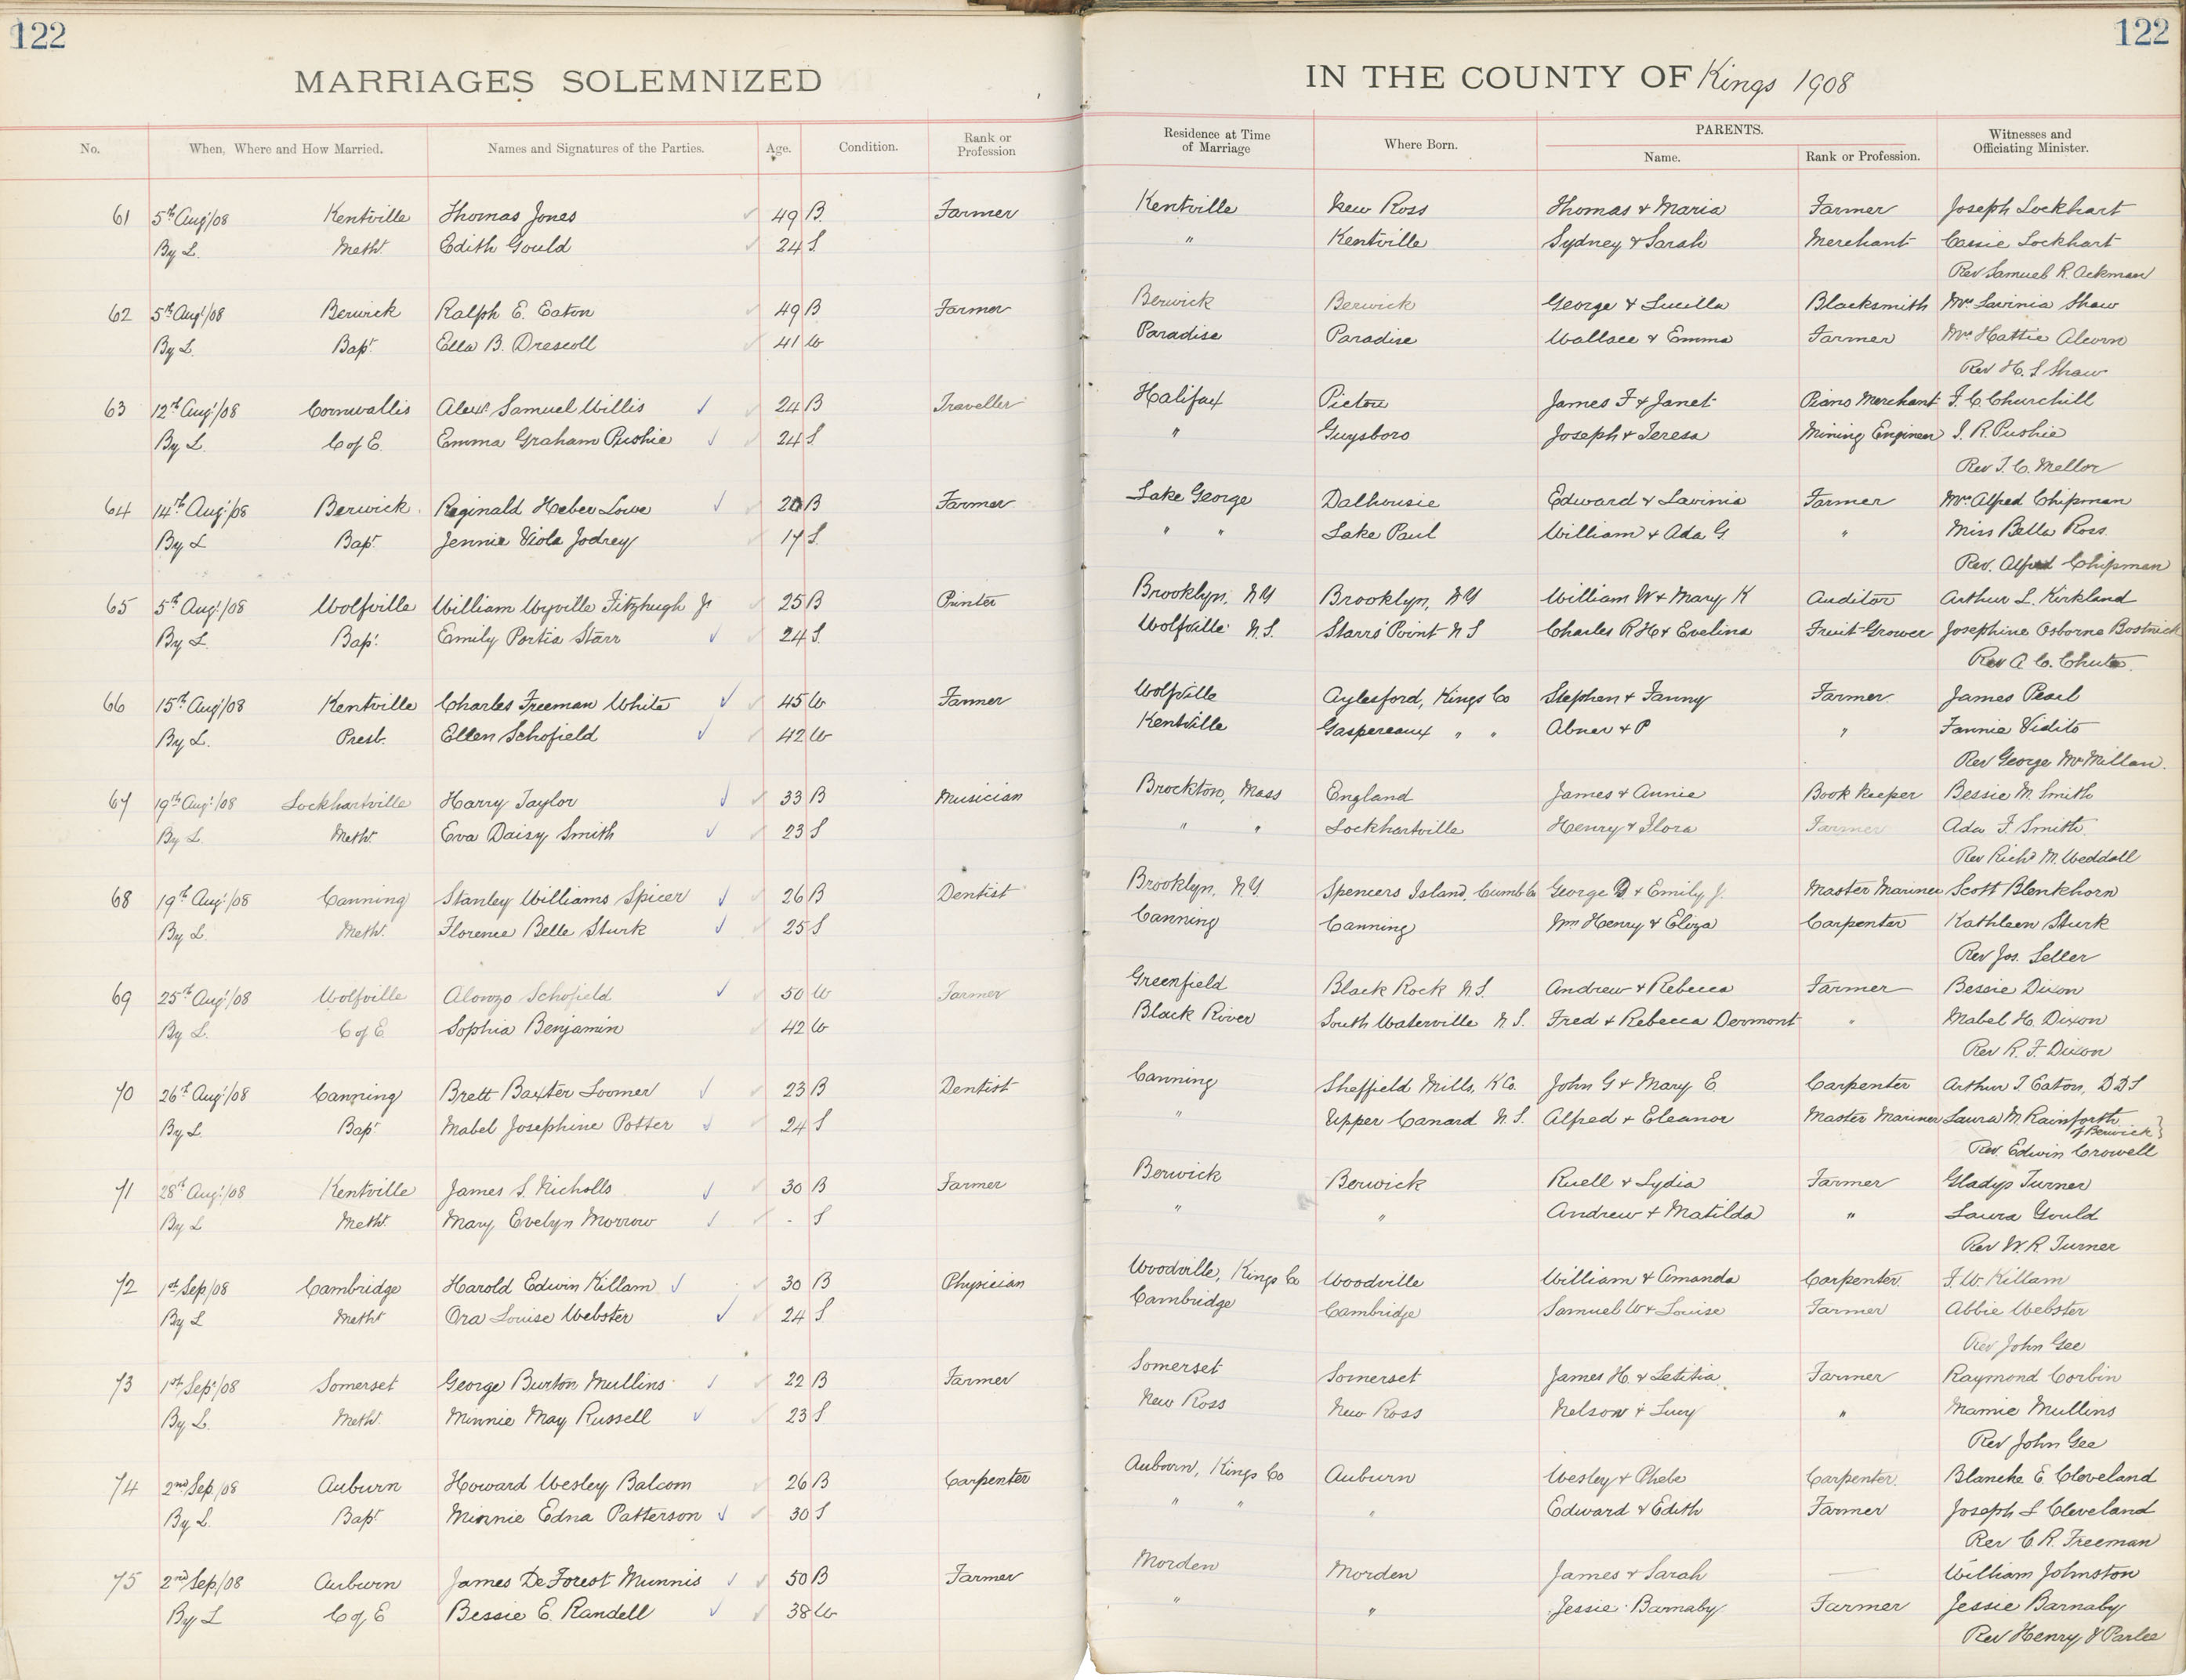 122
122
MARRIAGES SOLEMNIZED
IN THE COUNTY OF Kings 1908
No. When, Where and How Married. Names and Signatures of the Parties. Age. Condition. Rank or Profession Residence at Time of Marriage Where Born. PARENTS. Name. Rank or Profession. Witnesses and Officiating Minister.
61 5th Aug!/08 Kentville Thomas Jones 49 B. Farmer Kentville New Ross Thomas & Maria Farmer Joseph Lockhart
By L. Meth. Edith Gould 24 S " Kentville Sydney & Sarah Merchant Cassie Lockhart
Rev Samuel R. Ackman
62 5th Aug!/08 Berwick Ralph E. Eaton 49 B Farmer Berwick Berwick George & Lucilla Blacksmith Mrs Lavinia Shaw
By L. Bapt Ella B. Drescoll 41 W Paradise Paradise Wallace & Emma Farmer Mrs Hattie Alcorn
Rev H. S Shaw
63 12th Aug!/08 Cornwallis Alexr Samuel Willis 24 B Traveller Halifax Pictou James F & Janet Piano Merchant F. C. Churchill
By L. C of E. Emma Graham Pushie 24 S " Guysboro Joseph & Teresa Mining Engineer J. R. Pushie
Rev T. C. Mellor
64 14th Aug!/08 Berwick Reginald Heber Lowe 20 B Farmer Lake George Dalhousie Edward & Lavinia Farmer Mrs Alfred Chipman
By L Bapt Jennie Viola Jodrey 17 S. " " Lake Paul William & Ada G. " Miss Bella Ross.
Rev. Alfred Chipman
65 5th Aug!/08 Wolfville William Wyville Fitzhugh Jr 25 B Printer Brooklyn, NY Brooklyn, NY William W & Mary K Auditor Arthur L. Kirkland
By L. Bapt Emily Portia Starr 24 S. Wolfville N.S. Starrs' Point N S Charles R H & Evelina Fruit-Grower Josephine Osborne Bostwick
Rev A. C. Chute.
66 15th Aug!/08 Kentville Charles Freeman White 45 W Farmer Wolfville Aylesford, Kings Co Stephen & Fanny Farmer James Pearl
By L. Presb. Ellen Schofield 42 W Kentville Gaspereaux " " Abner & P " Fannie Vidito
Rev George McMillan.
67 19th Aug!/08 Lockhartville Harry Taylor 33 B Musician Brockton, Mass England James & Annie Book Keeper Bessie M. Smith
By L. Meth. Eva Daisy Smith 23 S " " Lockhartville Henry & Flora Farmer Ada F. Smith
Rev Richd M. Weddall
68 19th Aug!/08 Canning Stanley Williams Spicer 26 B Dentist Brooklyn, N.Y. Spencers Island, Cumb Co George D & Emily J. Master Mariner Scott Blenkhorn
By L. Meth. Florence Belle Sturk 25 S Canning Canning Wm Henry & Eliza Carpenter Kathleen Sturk
Rev Jos. Seller
69 25th Aug!/08 Wolfville Alonzo Schofield 50 W Farmer Greenfield Black Rock N.S. Andrew & Rebecca Farmer Bessie Dixon
By L. C of E. Sophia Benjamin 42 W Black River South Waterville N.S. Fred & Rebecca Dermont " Mabel H. Dixon
Rev R. F. Dixon
70 26th Aug!/08 Canning Brett Baxter Loomer 23 B Dentist Canning Sheffield Mills, K Co. John G & Mary E Carpenter Arthur T Eaton, DDS
By L. Bapt Mabel Josephine Potter 24 S " Upper Canard N.S. Alfred & Eleanor Master Mariner Laura M Rainforth
of Berwick }
Rev. Edwin Crowell
71 28th Aug!/08 Kentville James S. Nicholls 30 B Farmer Berwick Berwick Ruell & Lydia Farmer Gladys Turner
By L Meth. Mary Evelyn Morrow - S " " Andrew & Matilda " Laura Gould
Rev W. R. Turner
72 1st Sep/08 Cambridge Harold Edwin Killam 30 B Physician Woodville, Kings Co Woodville William & Amanda Carpenter F. W. Killam
By L Meth. Ora Louise Webster 24 S Cambridge Cambridge Samuel W & Louise Farmer Abbie Webster
Rev John Gee
73 1st Sep/08 Somerset George Burton Mullins 22 B Farmer Somerset Somerset James H & Letitia Farmer Raymond Corbin
By L. Meth. Minnie May Russell 23 S New Ross New Ross Nelson & Lucy " Mamie Mullins
Rev John Gee
74 2nd Sep/08 Auburn Howard Wesley Balcom 26 B Carpenter Auburn, Kings Co Auburn Wesley & Phebe Carpenter. Blanche E Cleveland
By L. Bapt Minnie Edna Patterson 30 S " " " Edward & Edith Farmer Joseph S Cleveland
Rev C. R. Freeman
75 2nd Sep/08 Auburn James DeForest Munnis 50 B Farmer Morden Morden James & Sarah — William Johnston
By L C of E Bessie E. Randell 38 W " " Jessie Barnaby Farmer Jessie Barnaby
Rev Henry J Parlee